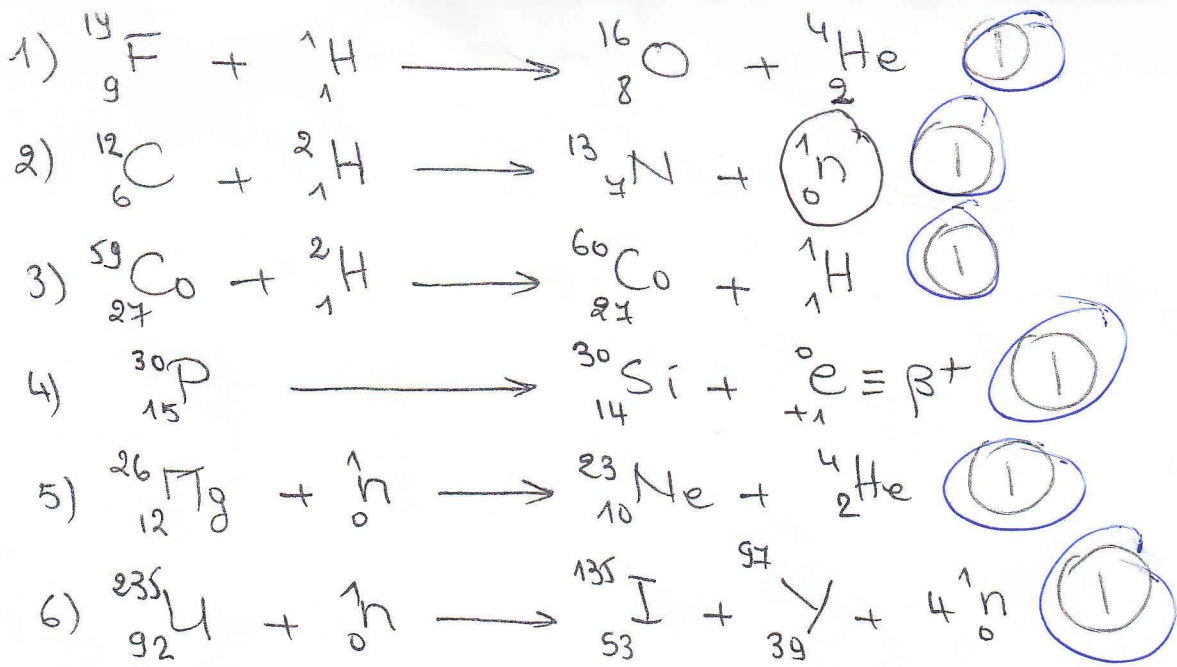 1) ¹⁹₉F + ¹₁H ⟶ ¹⁶₈O + ⁴₂He 1
2) ¹²₆C + ²₁H ⟶ ¹³₇N + ¹₀n 1
3) ⁵⁹₂₇Co + ²₁H ⟶ ⁶⁰₂₇Co + ¹₁H 1
4) ³⁰₁₅P ⟶ ³⁰₁₄Si + ⁰₊₁e ≡ β⁺ 1
5) ²⁶₁₂Mg + ¹₀n ⟶ ²³₁₀Ne + ⁴₂He 1
6) ²³⁵₉₂U + ¹₀n ⟶ ¹³⁵₅₃I + ⁹⁷₃₉Y + 4 ¹₀n 1